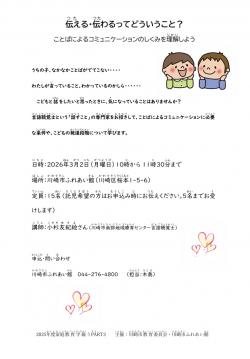 伝える・伝わるってどういうこと？
ことばによるコミュニケーションのしくみを理解しよう
うちの子、なかなかことばがでてこない・・・・
わたしが言っていること、わかっているのかしら・・・・・・
こどもと話をしたいと思ったときに、気になっていることはありませんか？
言語聴覚士という「話すこと」の専門家をお招きして、ことばによるコミュニケーションに必要
な条件や、こどもの発達段階について学びます。
日時：2026年3月2日（月曜日）10時から11時30分まで
場所：川崎市ふれあい館（川崎区桜本1-5-6）
定員：15名（託児希望の方はお申込み時にお伝えください。5名までお受
けします）
講師：小杉友紀絵さん（川崎市南部地域療育センター言語聴覚士）
申込・問い合わせ
川崎市ふれあい館 044-276-4800 （担当：木島）
2025年度家庭教育学級うPART3 主催：川崎市教育委員会・川崎市ふれあい館